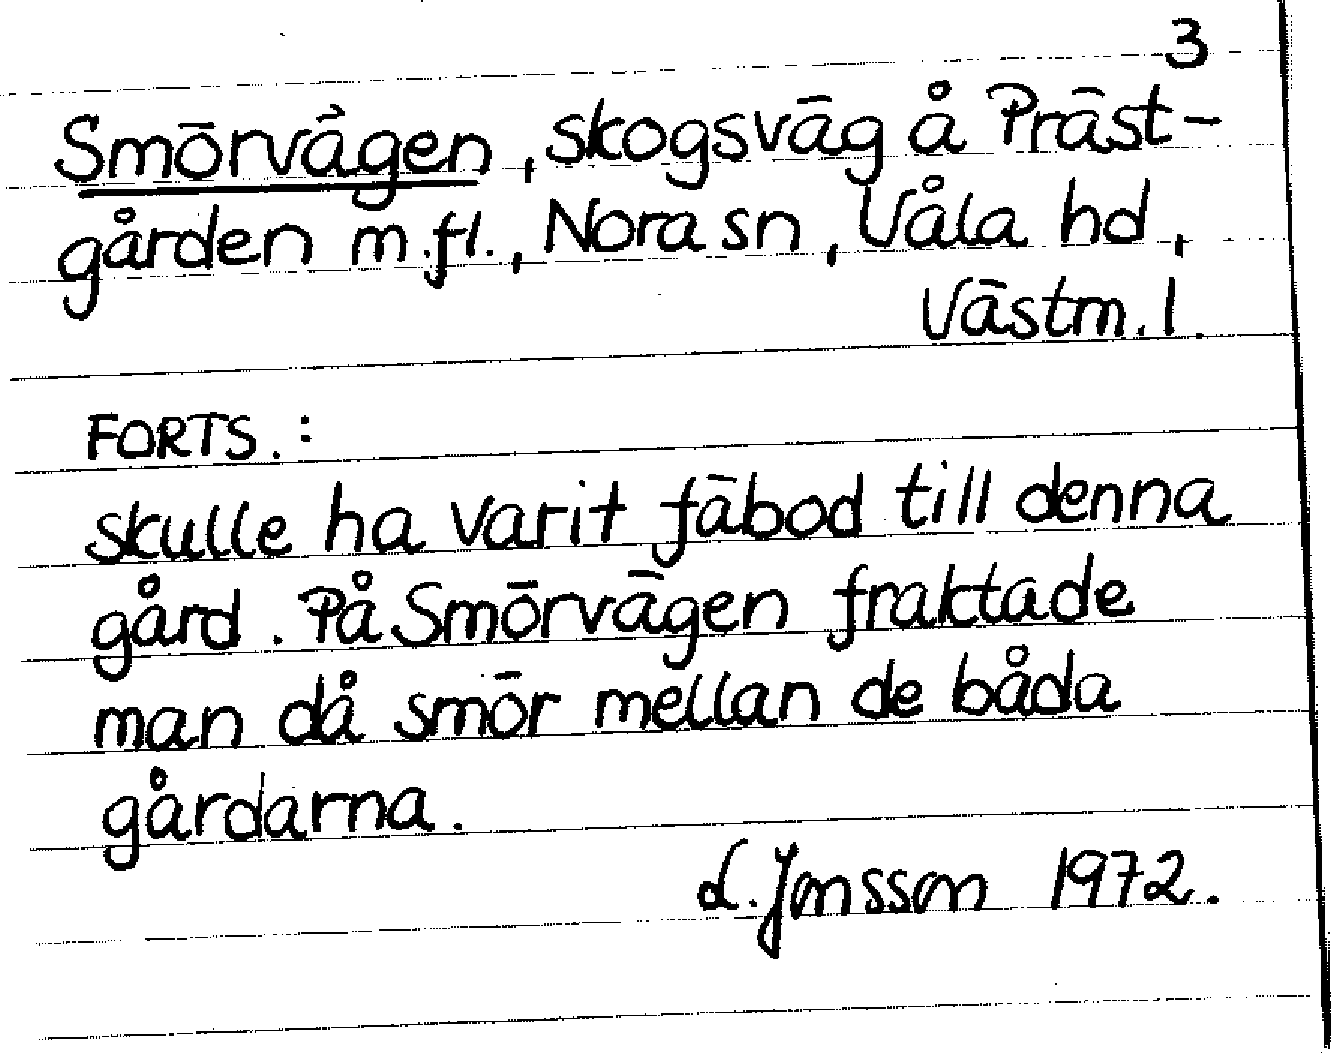 3
Smörvägen, skogsväg å Präst-
gården m.fl., Nora sn, Våla hd,
Västm. l.
FORTS.:
skulle ha varit fäbod till denna
gård. På Smörvägen fraktade
man då smör mellan de båda
gårdarna.
L. Jonsson 1972.